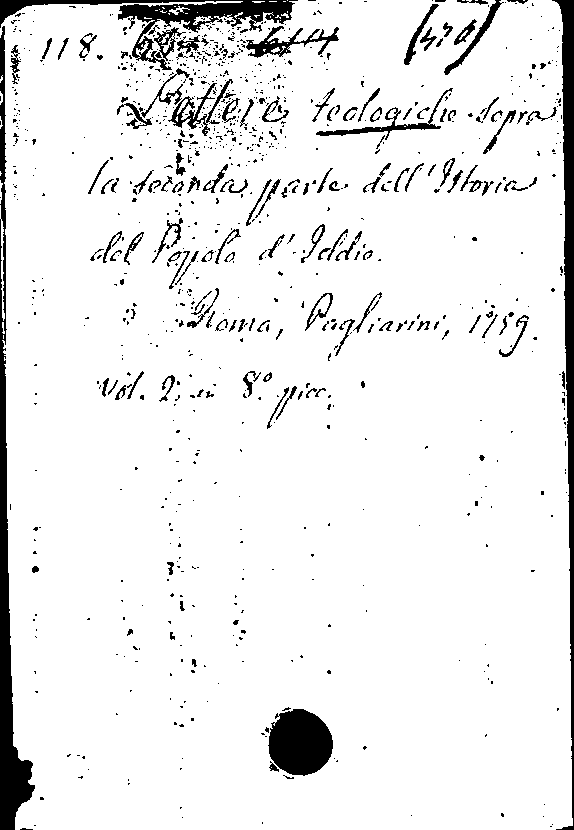 118. 614. (470)
Lettere teologiche sopra
la seconda parte dell'Istoria
del Popolo d'Iddio.
Roma, Pagliarini, 1759.
Vol. 2, in 8.° picc.